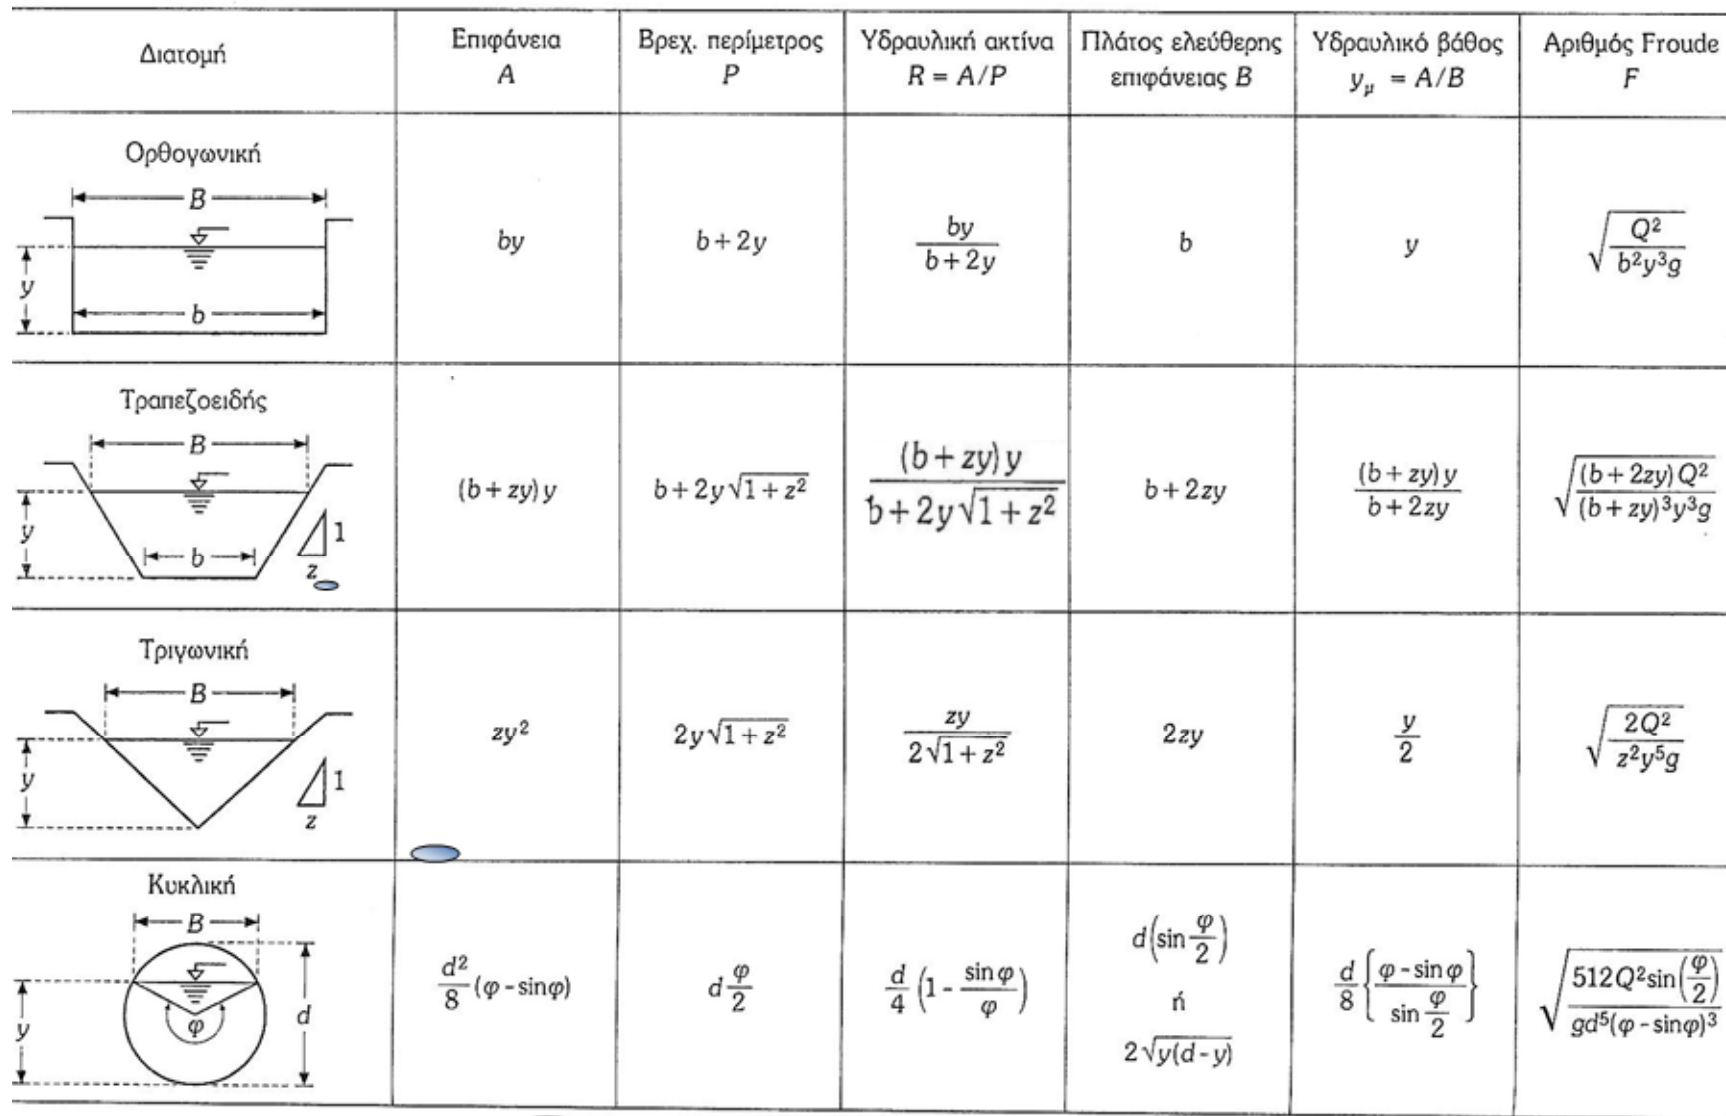 Διατομή
Επιφάνεια
A
Βρεχ. περίμετρος
P
Υδραυλική ακτίνα
R = A/P
Πλάτος ελεύθερης
επιφάνειας B
Υδραυλικό βάθος
y_μ = A/B
Αριθμός Froude
F
Ορθογωνική
B
y
b
by
b + 2y
by / (b + 2y)
b
y
√(Q² / (b²y³g))
Τραπεζοειδής
B
y
b
1
z
(b + zy) y
b + 2y√(1 + z²)
(b + zy) y / (b + 2y√(1 + z²))
b + 2zy
(b + zy) y / (b + 2zy)
√((b + 2zy) Q² / ((b + zy)³y³g))
Τριγωνική
B
y
1
z
zy²
2y√(1 + z²)
zy / (2√(1 + z²))
2zy
y / 2
√(2Q² / (z²y⁵g))
Κυκλική
B
y
φ
d
d²/8 (φ - sinφ)
d φ/2
d/4 (1 - sin φ / φ)
d(sin φ/2)
ή
2√(y(d - y))
d/8 {(φ - sin φ) / sin φ/2}
√(512Q² sin(φ/2) / (gd⁵(φ - sinφ)³))